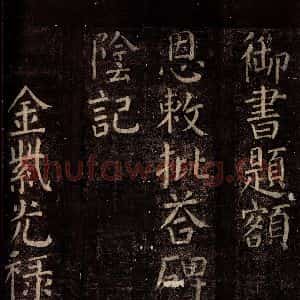 御書題額
恩敕批荅碑
陰記
金紫光禄
shufawang.cn